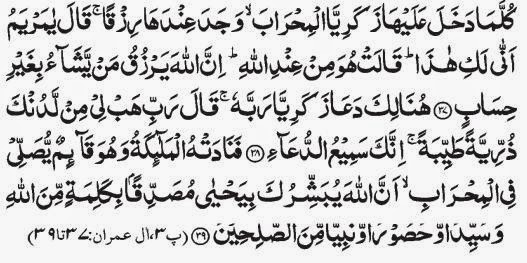 كُلَّمَا دَخَلَ عَلَيْهَا زَكَرِيَّا الْمِحْرَابَ ۙ وَجَدَ عِنْدَهَا رِزْقًا ۚ قَالَ يٰمَرْيَمُ
اَنّٰى لَكِ هٰذَا ؕ قَالَتْ هُوَ مِنْ عِنْدِ اللّٰهِ ؕ اِنَّ اللّٰهَ يَرْزُقُ مَنْ يَّشَآءُ بِغَيْرِ
حِسَابٍ ﴿۳۷﴾ هُنَالِكَ دَعَا زَكَرِيَّا رَبَّهٗ ۚ قَالَ رَبِّ هَبْ لِيْ مِنْ لَّدُنْكَ
ذُرِّيَّةً طَيِّبَةً ۚ اِنَّكَ سَمِيْعُ الدُّعَآءِ ﴿۳۸﴾ فَنَادَتْهُ الْمَلٰٓئِكَةُ وَهُوَ قَآئِمٌ يُّصَلِّيْ
فِي الْمِحْرَابِ ۙ اَنَّ اللّٰهَ يُبَشِّرُكَ بِيَحْيٰى مُصَدِّقًۢا بِكَلِمَةٍ مِّنَ اللّٰهِ
وَسَيِّدًا وَّحَصُوْرًا وَّنَبِيًّا مِّنَ الصّٰلِحِيْنَ ﴿۳۹﴾ (پ۳، اٰل عمران: ۳۷ تا ۳۹)